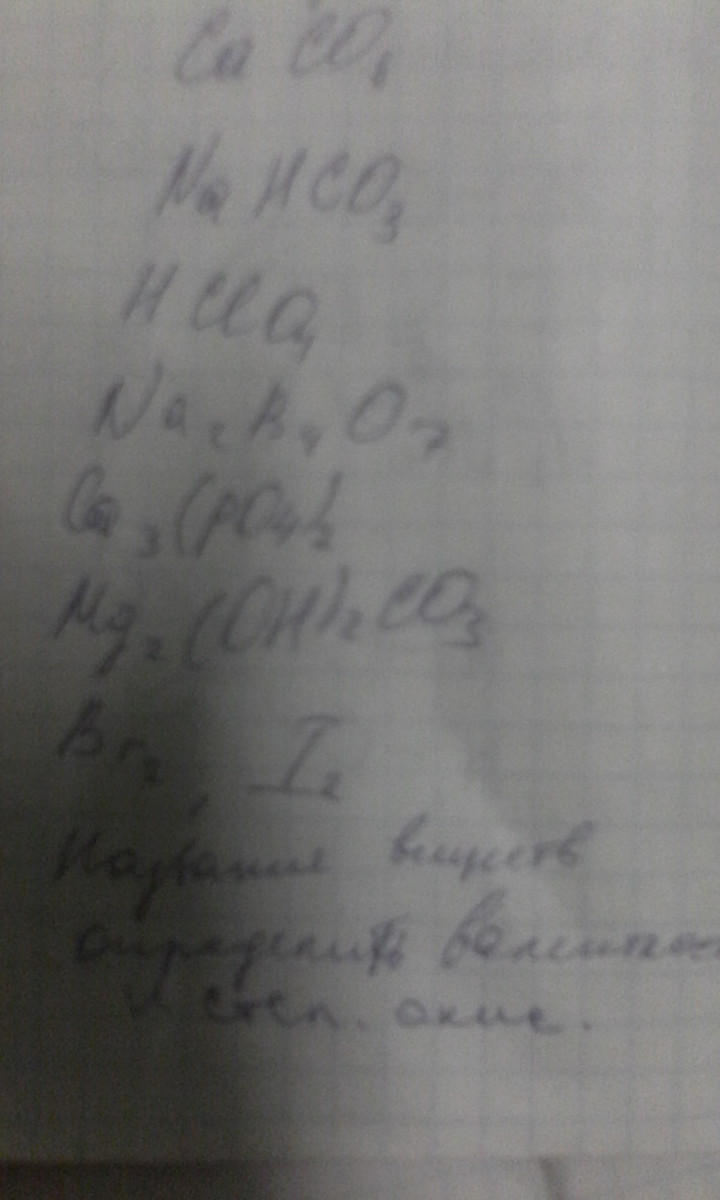 NaHCO₃
HClO₄
Na₂B₄O₇
Ca₃(PO₄)₂
Mg₂(OH)₂CO₃
Br₂, I₂
Название веществ
определить
и степ. окис.